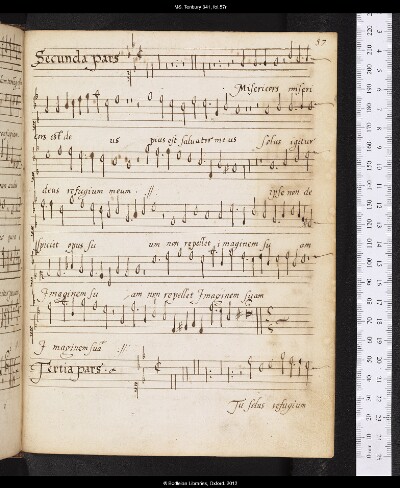 MS. Tenbury 341, fol.57r
57
Secunda pars
Misericors miseri
cors est de us pius est salvator meus solus igitur
deus refugium meum :// ipse non de
spicit opus su um non repellet imaginem su am
Imaginem su am non repellet Imaginem suam
Imaginem suā ://
Tertia pars
Tu solus refugium
© Bodleian Libraries, Oxford, 2012